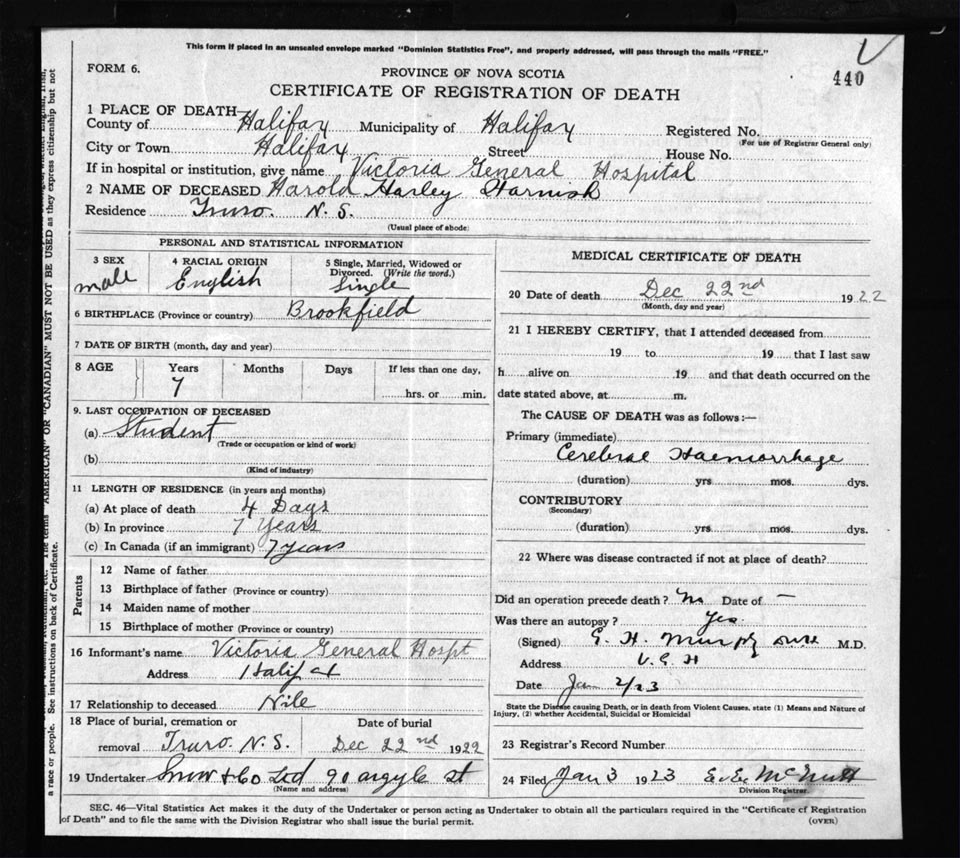 This form if placed in an unsealed envelope marked "Dominion Statistics Free", and properly addressed, will pass through the mails "FREE."
FORM 6.
440
PROVINCE OF NOVA SCOTIA
CERTIFICATE OF REGISTRATION OF DEATH
1 PLACE OF DEATH
County of Halifax Municipality of Halifax Registered No.
(For use of Registrar General only)
City or Town Halifax Street House No.
If in hospital or institution, give name Victoria General Hospital
2 NAME OF DECEASED Harold Harley Harnish
Residence Truro. N. S.
(Usual place of abode)
PERSONAL AND STATISTICAL INFORMATION
3 SEX male
4 RACIAL ORIGIN English
5 Single, Married, Widowed or Divorced. (Write the word.) Single
6 BIRTHPLACE (Province or country) Brookfield
7 DATE OF BIRTH (month, day and year)
8 AGE Years Months Days If less than one day,
7 hrs. or min.
9. LAST OCCUPATION OF DECEASED
(a) Student
(Trade or occupation or kind of work)
(b)
(Kind of industry)
11 LENGTH OF RESIDENCE (in years and months)
(a) At place of death 4 Days
(b) In province 7 Years
(c) In Canada (if an immigrant) 7 years
Parents
12 Name of father
13 Birthplace of father (Province or country)
14 Maiden name of mother
15 Birthplace of mother (Province or country)
16 Informant's name Victoria General Hospt
Address Halifax
17 Relationship to deceased Nile
18 Place of burial, cremation or Date of burial
removal Truro. N. S. Dec 22nd 1922
19 Undertaker Snow & Co Ltd 90 argyle st
(Name and address)
MEDICAL CERTIFICATE OF DEATH
20 Date of death Dec 22nd 1922
(Month, day and year)
21 I HEREBY CERTIFY, that I attended deceased from
19 to 19 that I last saw
h alive on 19 and that death occurred on the
date stated above, at m.
The CAUSE OF DEATH was as follows:—
Primary (immediate)
Cerebral Haemorrhage
(duration) yrs mos. dys.
CONTRIBUTORY
(Secondary)
(duration) yrs mos. dys.
22 Where was disease contracted if not at place of death?
Did an operation precede death? No Date of —
Was there an autopsy? Yes.
(Signed) E. H. Murphy M.D.
Address V. G. H
Date Jan 2/23
State the Disease causing Death, or in death from Violent Causes, state (1) Means and Nature of
Injury, (2) whether Accidental, Suicidal or Homicidal
23 Registrar's Record Number
24 Filed Jan 3 1923 McNutt
Division Registrar
SEC. 46—Vital Statistics Act makes it the duty of the Undertaker or person acting as Undertaker to obtain all the particulars required in the "Certificate of Registration
of Death" and to file the same with the Division Registrar who shall issue the burial permit.
(OVER)
AMERICAN" OR "CANADIAN" MUST NOT BE USED as they express citizenship but not
a race or people. See instructions on back of Certificate.